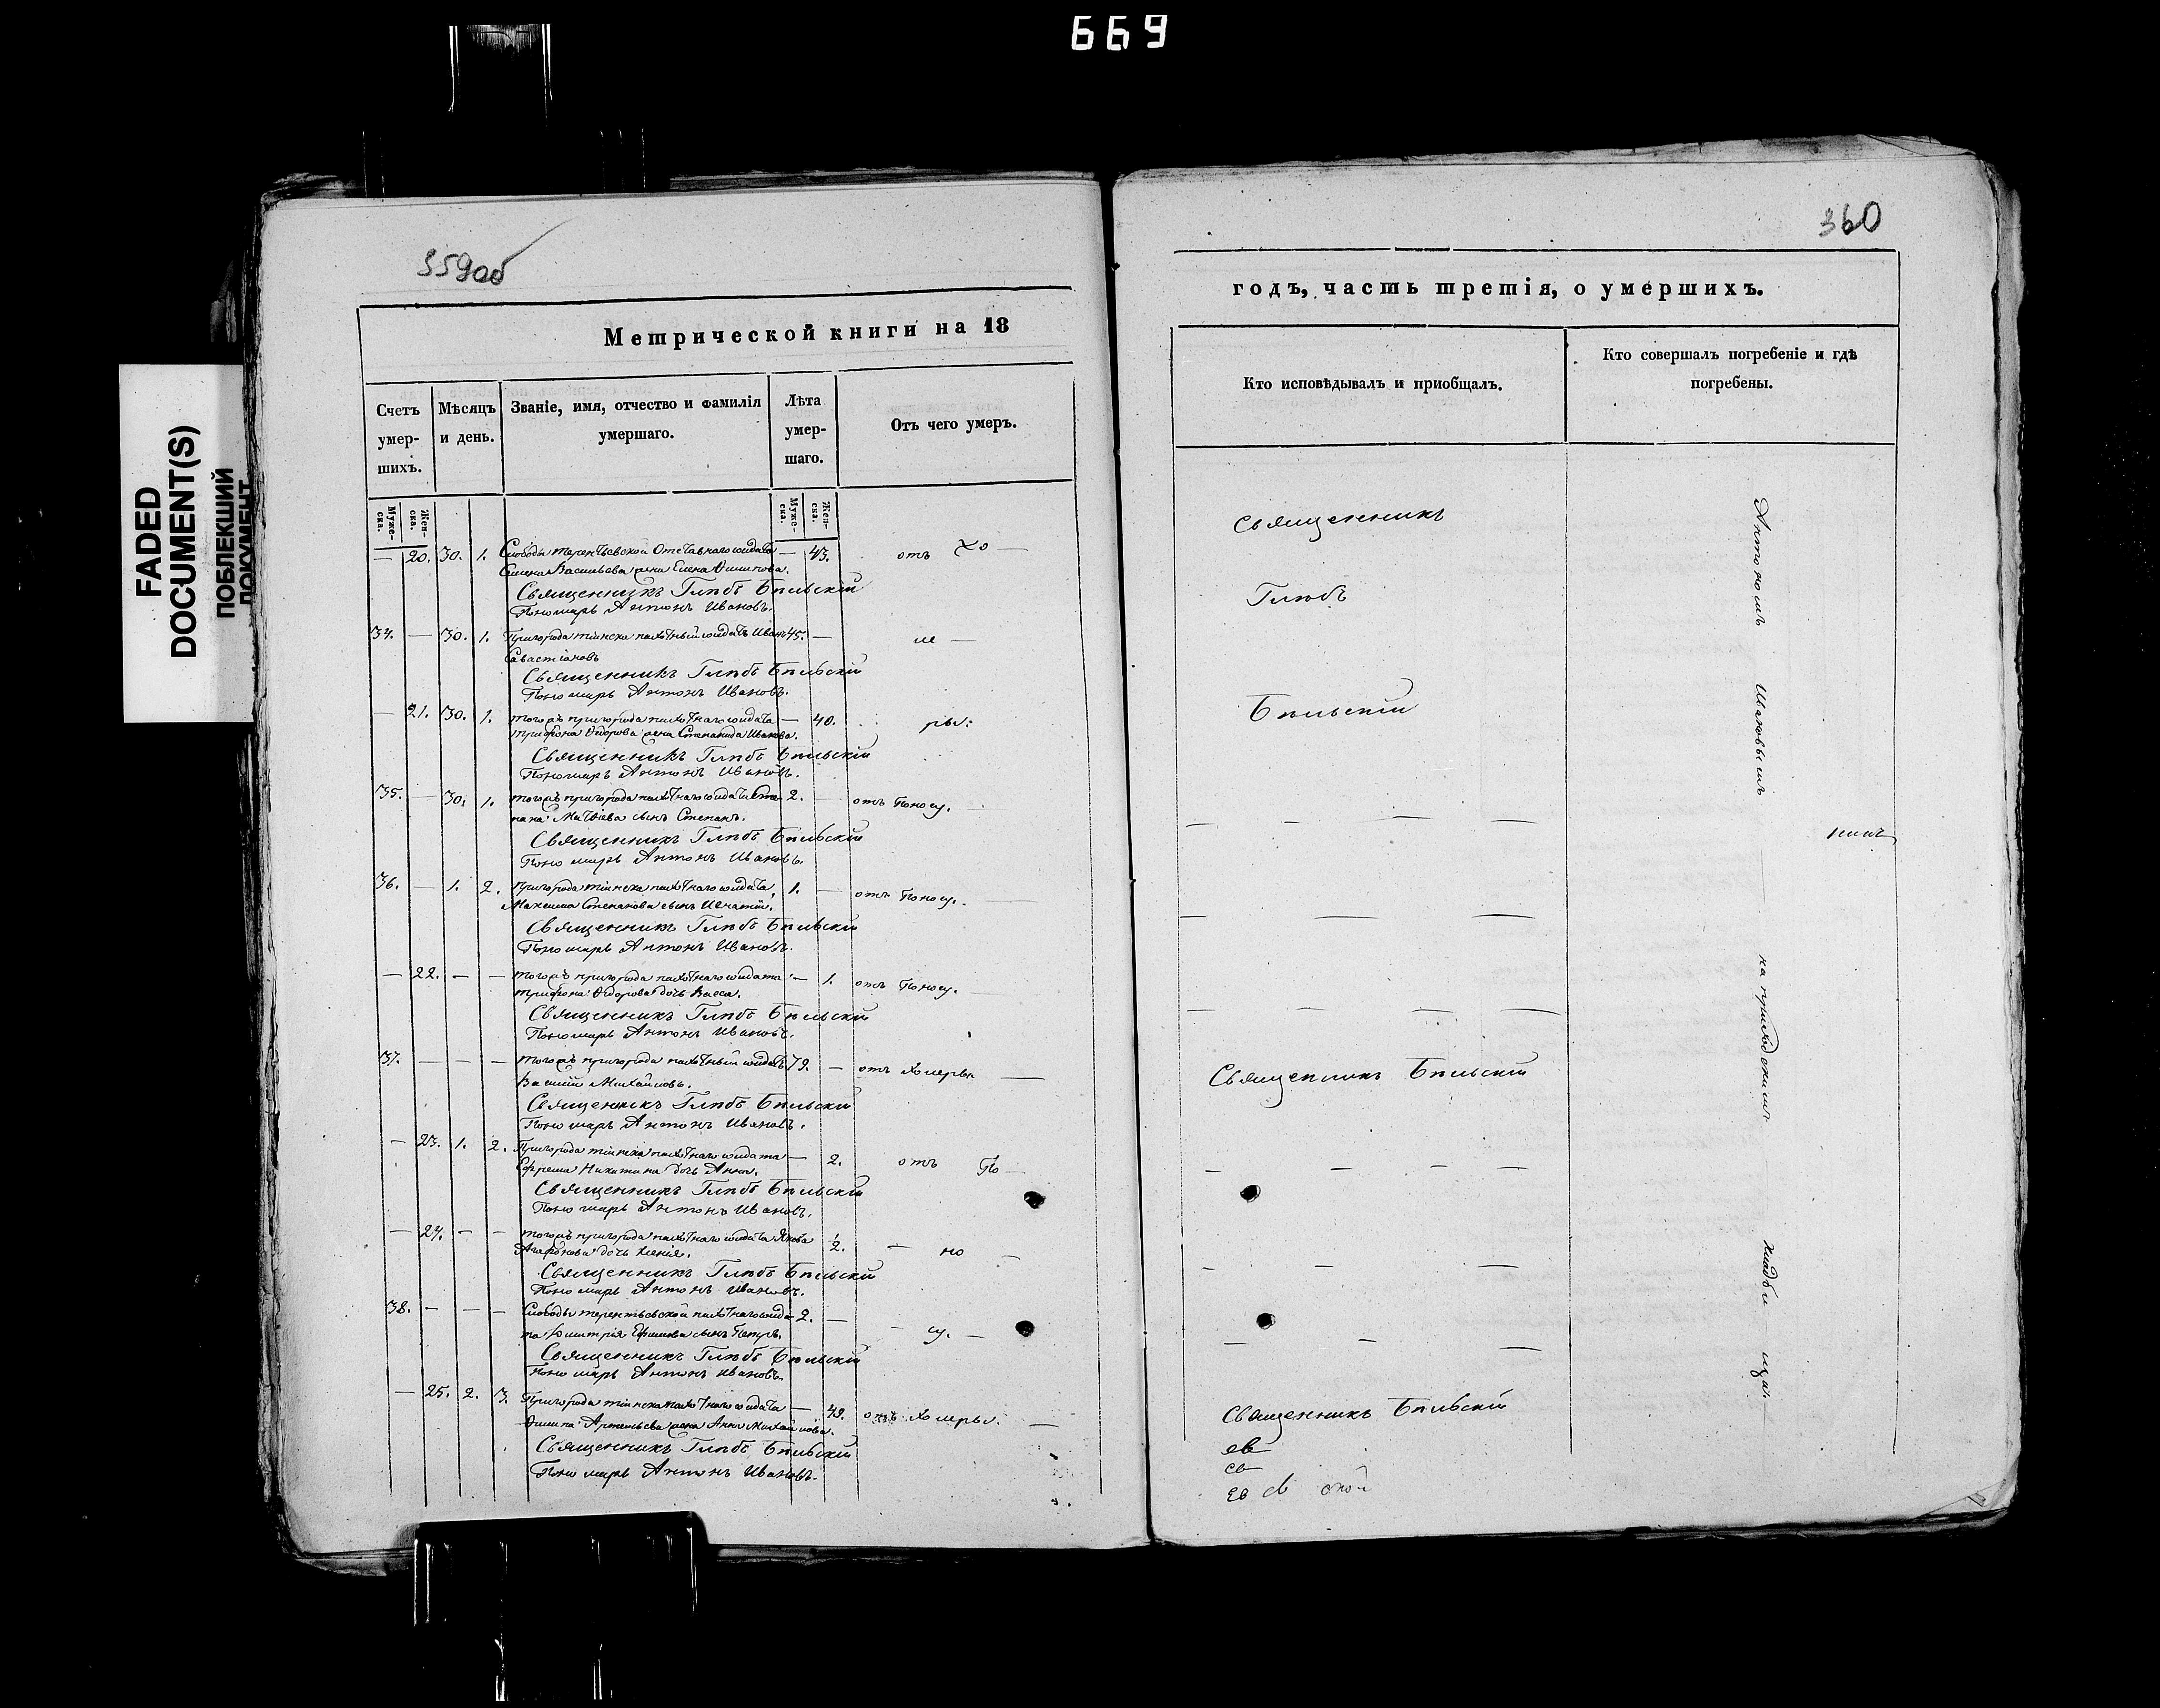 669
FADED
DOCUMENT(S)
ПОБЛЕКШИЙ
ДОКУМЕНТ
359об
Метрической книги на 18
Счетъ умер-шихъ.
Мѣсяцъ и день.
Званіе, имя, отчество и фамилія умершаго.
Лѣта умер-шаго.
Отъ чего умеръ.
Муже-ска. Жен-ска.
Муже-ска. Жен-ска.
— 20. 30. 1. Слободы терентьевской Отставнаго солдата — 43. отъ Хо —
Семена Васильева жена Елена Осипова.
Священникъ Глѣбъ Бѣльскій
Пономарь Антонъ Ивановъ.
34. — 30. 1. Пригорода тіинска пахотный солдатъ Иванъ 45. — ле —
Савастіановъ
Священникъ Глѣбъ Бѣльскій
Пономарь Антонъ Ивановъ.
— 21. 30. 1. тогожъ пригорода пахотнаго солдата — 40. ры:
трифона Ѳедорова жена Степанида Иванова.
Священникъ Глѣбъ Бѣльскій
Пономарь Антонъ Ивановъ.
35. — 30. 1. тогожъ пригорода пахотнаго солдата Сте- 2. — отъ Поносу. —
пана Матвѣева сынъ Степанъ.
Священникъ Глѣбъ Бѣльскій
Пономарь Антонъ Ивановъ.
36. — 1. 2. пригорода тіинска пахотнаго солдата 1. — отъ Поносу. —
Максима Степанова сынъ Игнатій.
Священникъ Глѣбъ Бѣльскій
Пономарь Антонъ Ивановъ.
— 22. — — тогожъ пригорода пахотнаго солдата — 1. отъ Поносу. —
трифона Ѳедорова дочь Васса.
Священникъ Глѣбъ Бѣльскій
Пономарь Антонъ Ивановъ.
37. — — — тогожъ пригорода пахотный солдатъ 79. — отъ Холеры —
Василій Михайловъ.
Священникъ Глѣбъ Бѣльскій
Пономарь Антонъ Ивановъ.
— 23. 1. 2. Пригорода тіинска пахотнаго солдата — 2. отъ По —
Ефрема Никитина дочь Анна.
Священникъ Глѣбъ Бѣльскій
Пономарь Антонъ Ивановъ.
— 24. — — тогожъ пригорода пахотнаго солдата Якова ½. — но —
Агафонова дочь Ксенія.
Священникъ Глѣбъ Бѣльскій
Пономарь Антонъ Ивановъ.
38. — — — Слободы терентьевской пахотнаго солда- 2. — — су. —
та Димитрія Ефимова сынъ Петръ.
Священникъ Глѣбъ Бѣльскій
Пономарь Антонъ Ивановъ.
— 25. 2. 3. Пригорода тіинска пахотнаго солдата — 49. отъ Холеры. —
Осипа Артемьева жена Анна Михайлова.
Священникъ Глѣбъ Бѣльскій
Пономарь Антонъ Ивановъ.
360
годъ, часть третія, о умершихъ.
Кто исповѣдывалъ и приобщалъ.
Кто совершалъ погребеніе и гдѣ погребены.
Священникъ
Глѣбъ
Бѣльскій
Священникъ Бѣльскій
Священникъ Бѣльскій
ев
св
ев св
на приходскомъ
кладби ща.